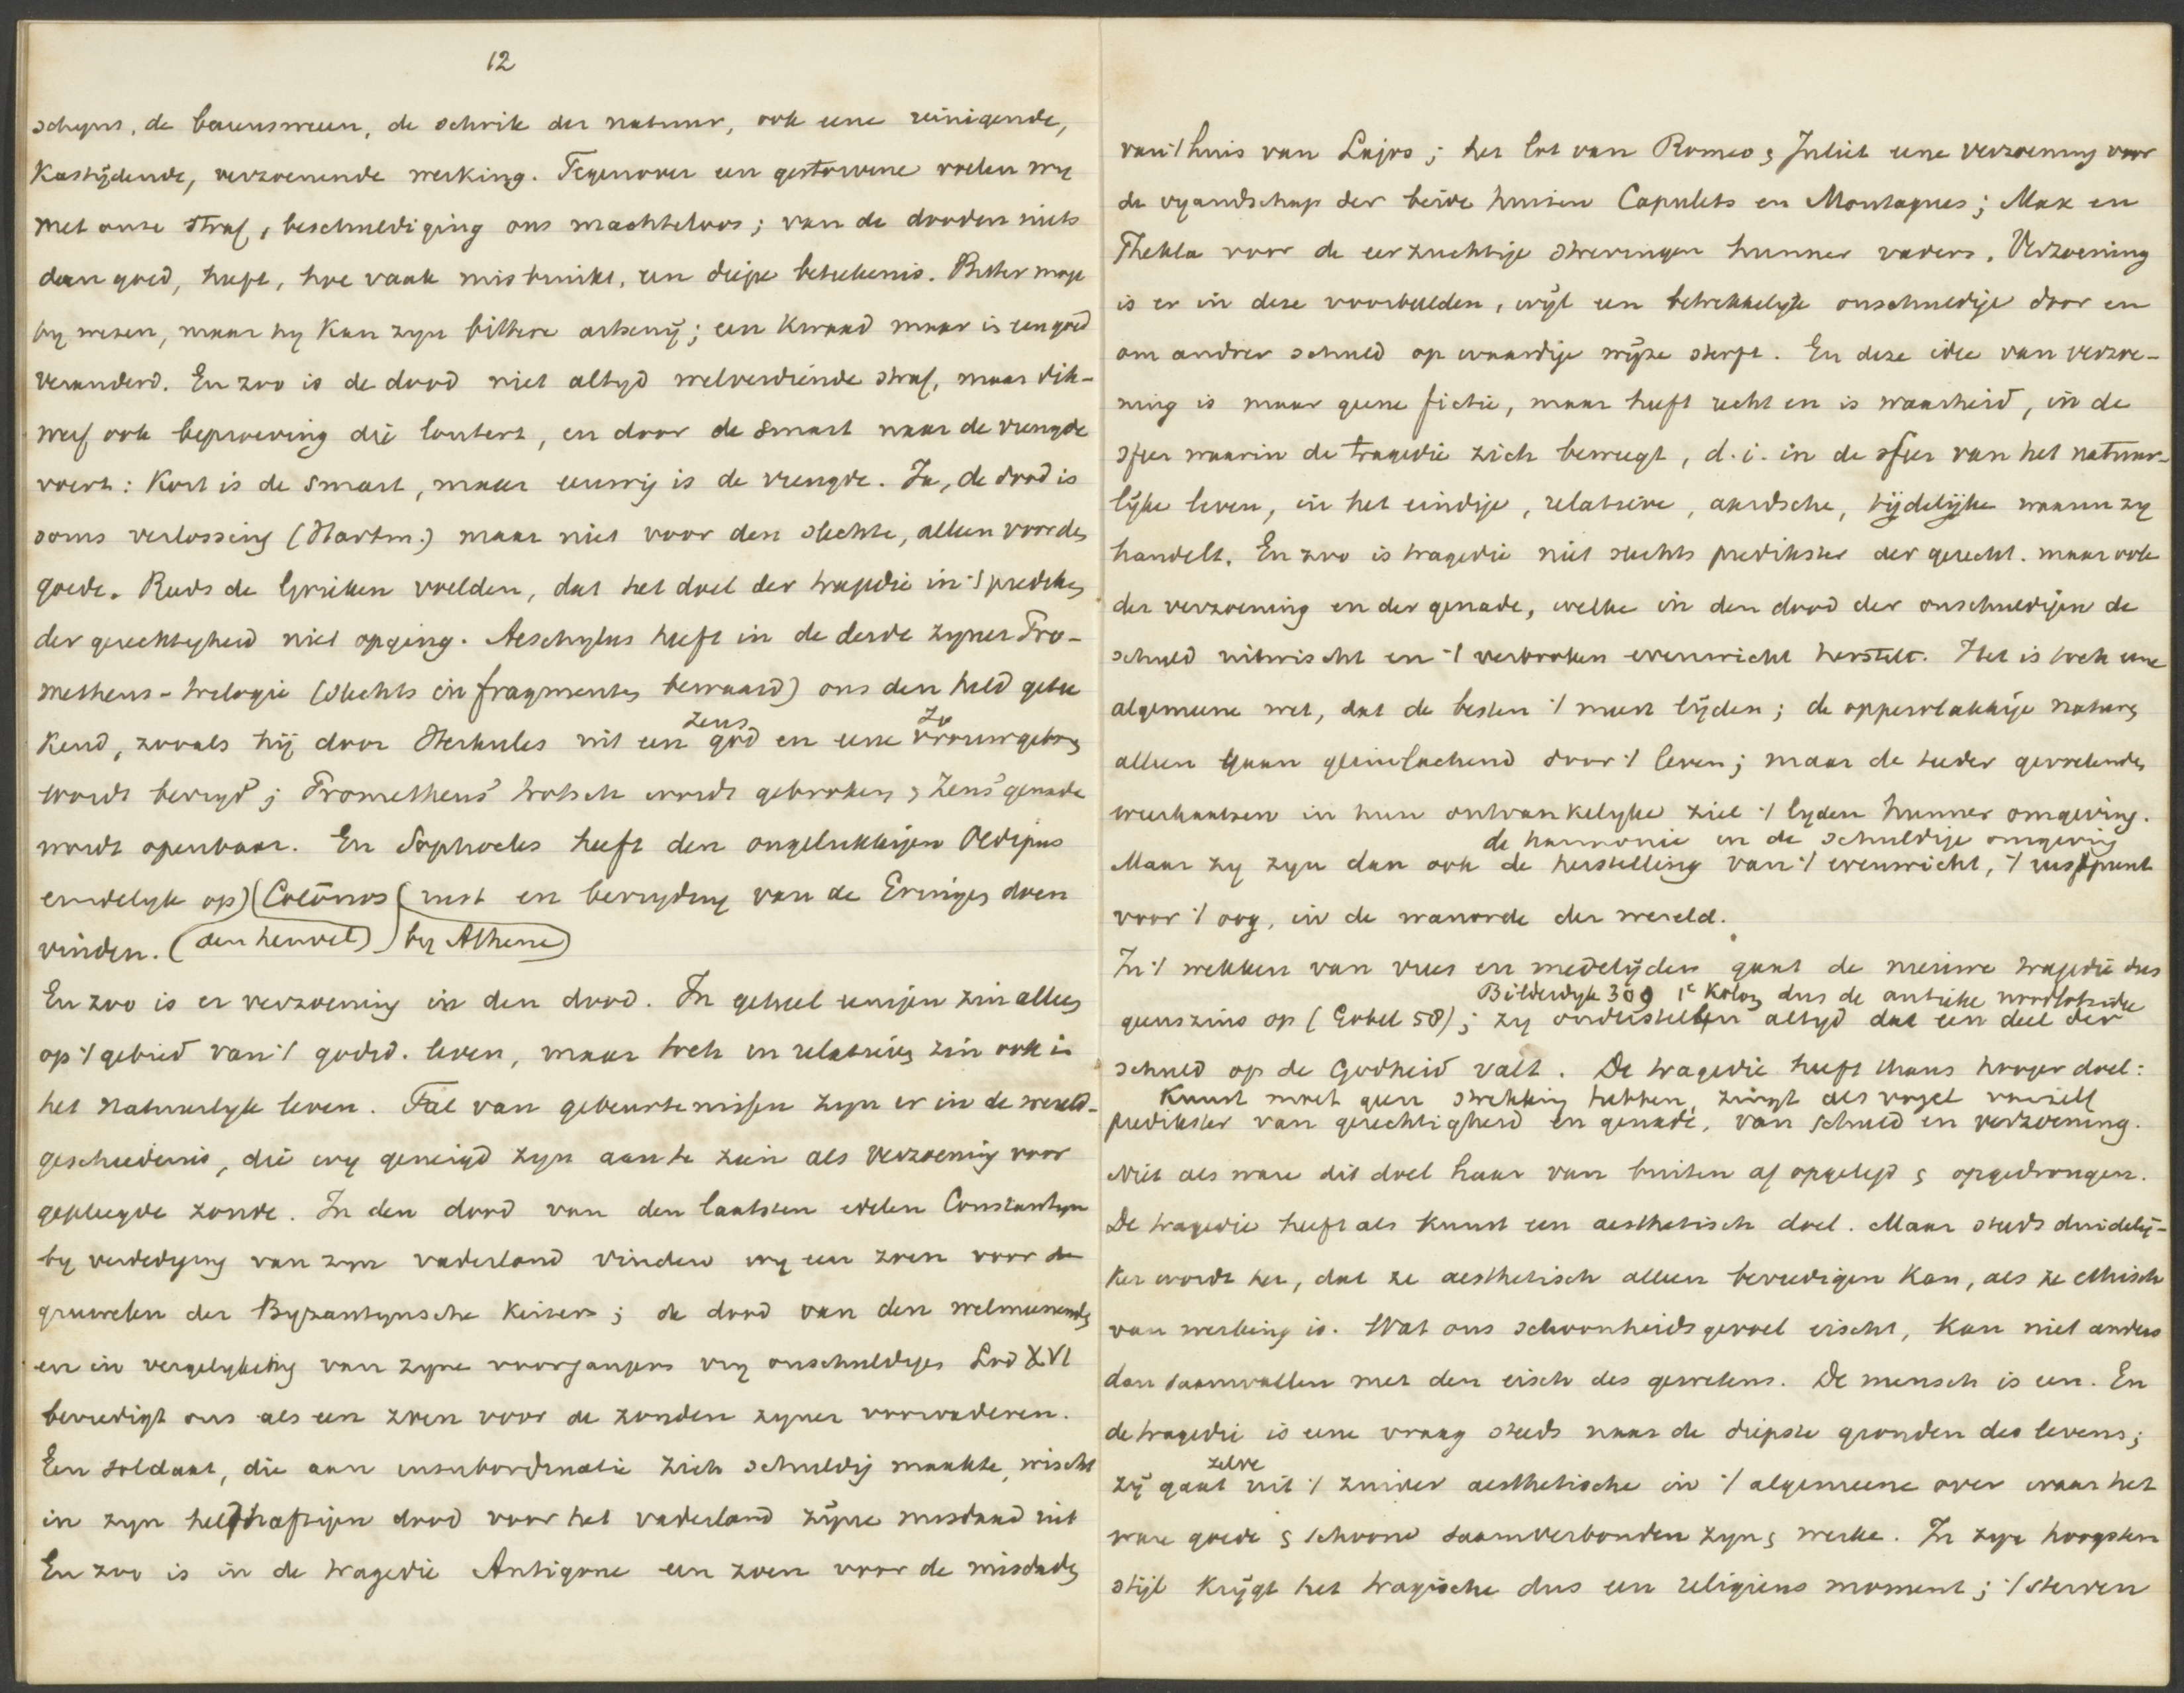 12
schyns, de bovensmeen, de schrik der natuur, ook eene reinigende,
Kastijdende, verzoenende werking. Tegenover een gestorvene voelen wy
met onze straf, beschuldiging ons machteloos; van de dooden niets
dan goed, heeft, hoe vaak misbruikt, een diepe betekenis. Bitter moge
hy wezen, maar hy kan zyn bittere artseny; een kwaad maar is een goed
veranderd. En zoo is de dood niet altyd welverdiende straf, maar dik-
werf ook beproeving die loutert, en door de smart naar de vreugde
voert: Kort is de smart, maar eeuwig is de vreugde. Ja, de dood is
soms verlossing (Hartm.) maar niet voor den slechte, alleen voor den
goede. Reeds de Grieken voelden, dat het doel der tragedie in 't prediken
der gerechtigheid niet opging. Aeschylus heeft in de derde zyner Pro-
metheus-trilogie (slechts in fragmenten bewaard) ons den held gete
kend, zooals hij door Herkules uit een god en eene vrouw geboren
Zeus Io
wordt bevryd; Prometheus' trotsch wordt gebroken, Zeus' genade
wordt openbaar. En Sophocles heeft den ongelukkigen Oedipus
eindelyk op) (Colōnos (rust en bevryding van de Erinyen doen
vinden. (den heuvel) by Athene)
En zoo is er verzoening in den dood. In geheel eenigen zin alleen
op 't gebied van 't godsd. leven, maar toch in relatieven zin ook in
het natuurlyk leven. Tal van gebeurtenissen zyn er in de wereld-
geschiedenis, die wy geneigd zyn aan te zien als verzoening voor
gepleegde zonde. In den dood van den laatsten edelen Constantyn
by verdediging van zyn vaderland vinden wy een zoen voor de
gruwelen der Byzantynsche keizers; de dood van den welmeenenden
en in vergelyking van zyne voorgangers vry onschuldigen Lod XVI
bevredigt ons als een zoen voor de zonden zyner voorvaderen.
Een soldaat, die aan insubordinatie zich schuldig maakte, wischt
in zyn heldhaftigen dood voor het vaderland zijne misdaad uit
En zoo is in de tragedie Antigone een zoen voor de misdaden
van 't huis van Lajos; het lot van Romeo & Juliet eene verzoening voor
de vyandschap der beide huizen Capulets en Montagues; Max en
Thekla voor de eerzuchtige strevingen hunner vaders. Verzoening
is er in deze voorbeelden, wijl een betrekkelijk onschuldige door en
om andrer schuld op waardige wijze sterft. En deze idee van verzoe-
ning is maar geene fictie, maar heeft recht en is waarheid, in de
sfeer waarin de tragedie zich beweegt, d.i. in de sfeer van het natuur-
lijke leven, in het eindige, relatieve, aardsche, tijdelijke waarin zy
handelt. En zoo is tragedie niet slechts predikster der gerecht. maar ook
der verzoening en der genade, welke in den dood der onschuldigen de
schuld uitwischt en 't verbroken evenwicht herstelt. Het is toch eene
algemeene wet, dat de besten 't meest lijden; de oppervlakkige naturen
alleen gaan glimlachend door 't leven; maar de teeder gevoelenden
weerkaatsen in hun ontvankelyke ziel 't lyden hunner omgeving.
de harmonie in de schuldige omgeving
Maar zy zyn dan ook de herstelling van 't evenwicht, 't rustpunt
voor 't oog, in de wanorde der wereld.
In 't wekken van vrees en medelijden gaat de nieuwe tragedie dus
Bilderdyk 309 1e Kolom dus de antieke noodlotsidee
geenszins op (Gobel 58); zy onderstellen altyd dat een deel der
schuld op de Godheid valt. De tragedie heeft thans hooger doel:
Kunst moet geen strekking hebben, zingt als vogel vanzelf
predikster van gerechtigheid en genade, van schuld en verzoening.
Niet als ware dit doel haar van buiten af opgelegd & opgedrongen.
De tragedie heeft als kunst een aesthetisch doel. Maar steeds duidelij-
ker wordt het, dat ze aesthetisch alleen bevredigen kan, als ze ethisch
van werking is. Wat ons schoonheidsgevoel eischt, kan niet anders
dan saamvallen met den eisch des gewetens. De mensch is een. En
de tragedie is eene vraag steeds naar de diepste gronden des levens;
zelve
zij gaat uit 't zuiver aesthetische in 't algemeene over waar het
ware goede & schoone saamverbonden zyn & werke. In zyn hoogsten
stijl krijgt het tragische dus een religieus moment; 't sterven